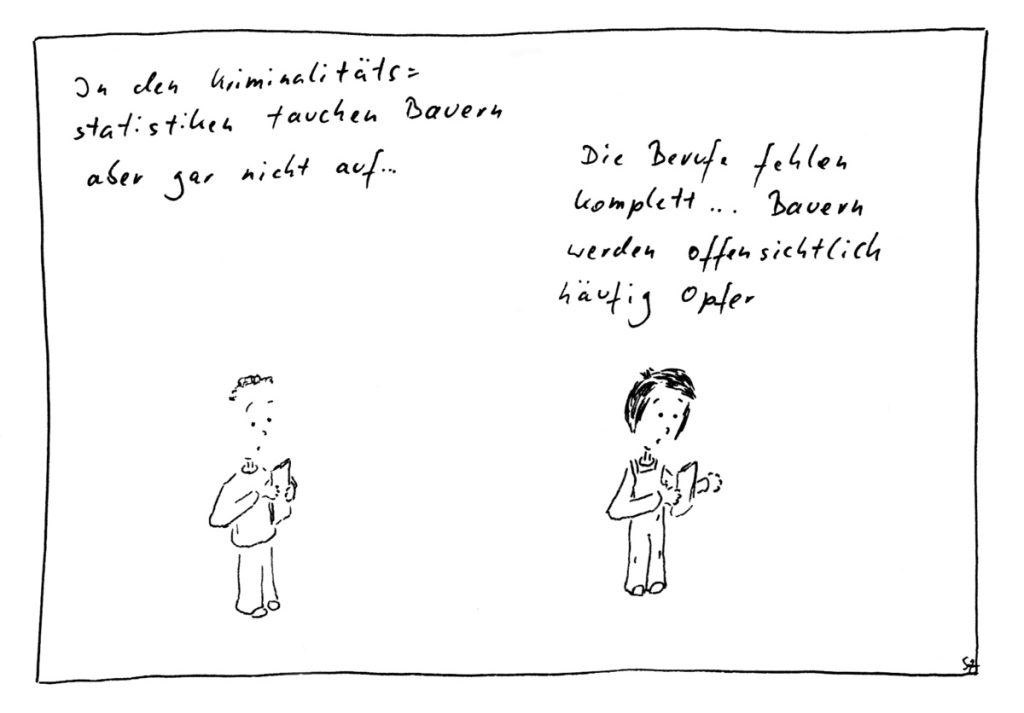 In den Kriminalitäts=
statistiken tauchen Bauern
aber gar nicht auf...
Die Berufe fehlen
komplett... Bauern
werden offensichtlich
häufig Opfer